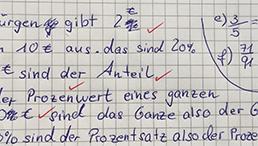 ürgen gibt 2€
10 € aus. das sind 20%
€ sind der Anteil
der Prozentwert eines ganzen
€ sind das Ganze also der G
0% sind der Prozentsatz also der Proze
e) 3/5 =
f) 71/91